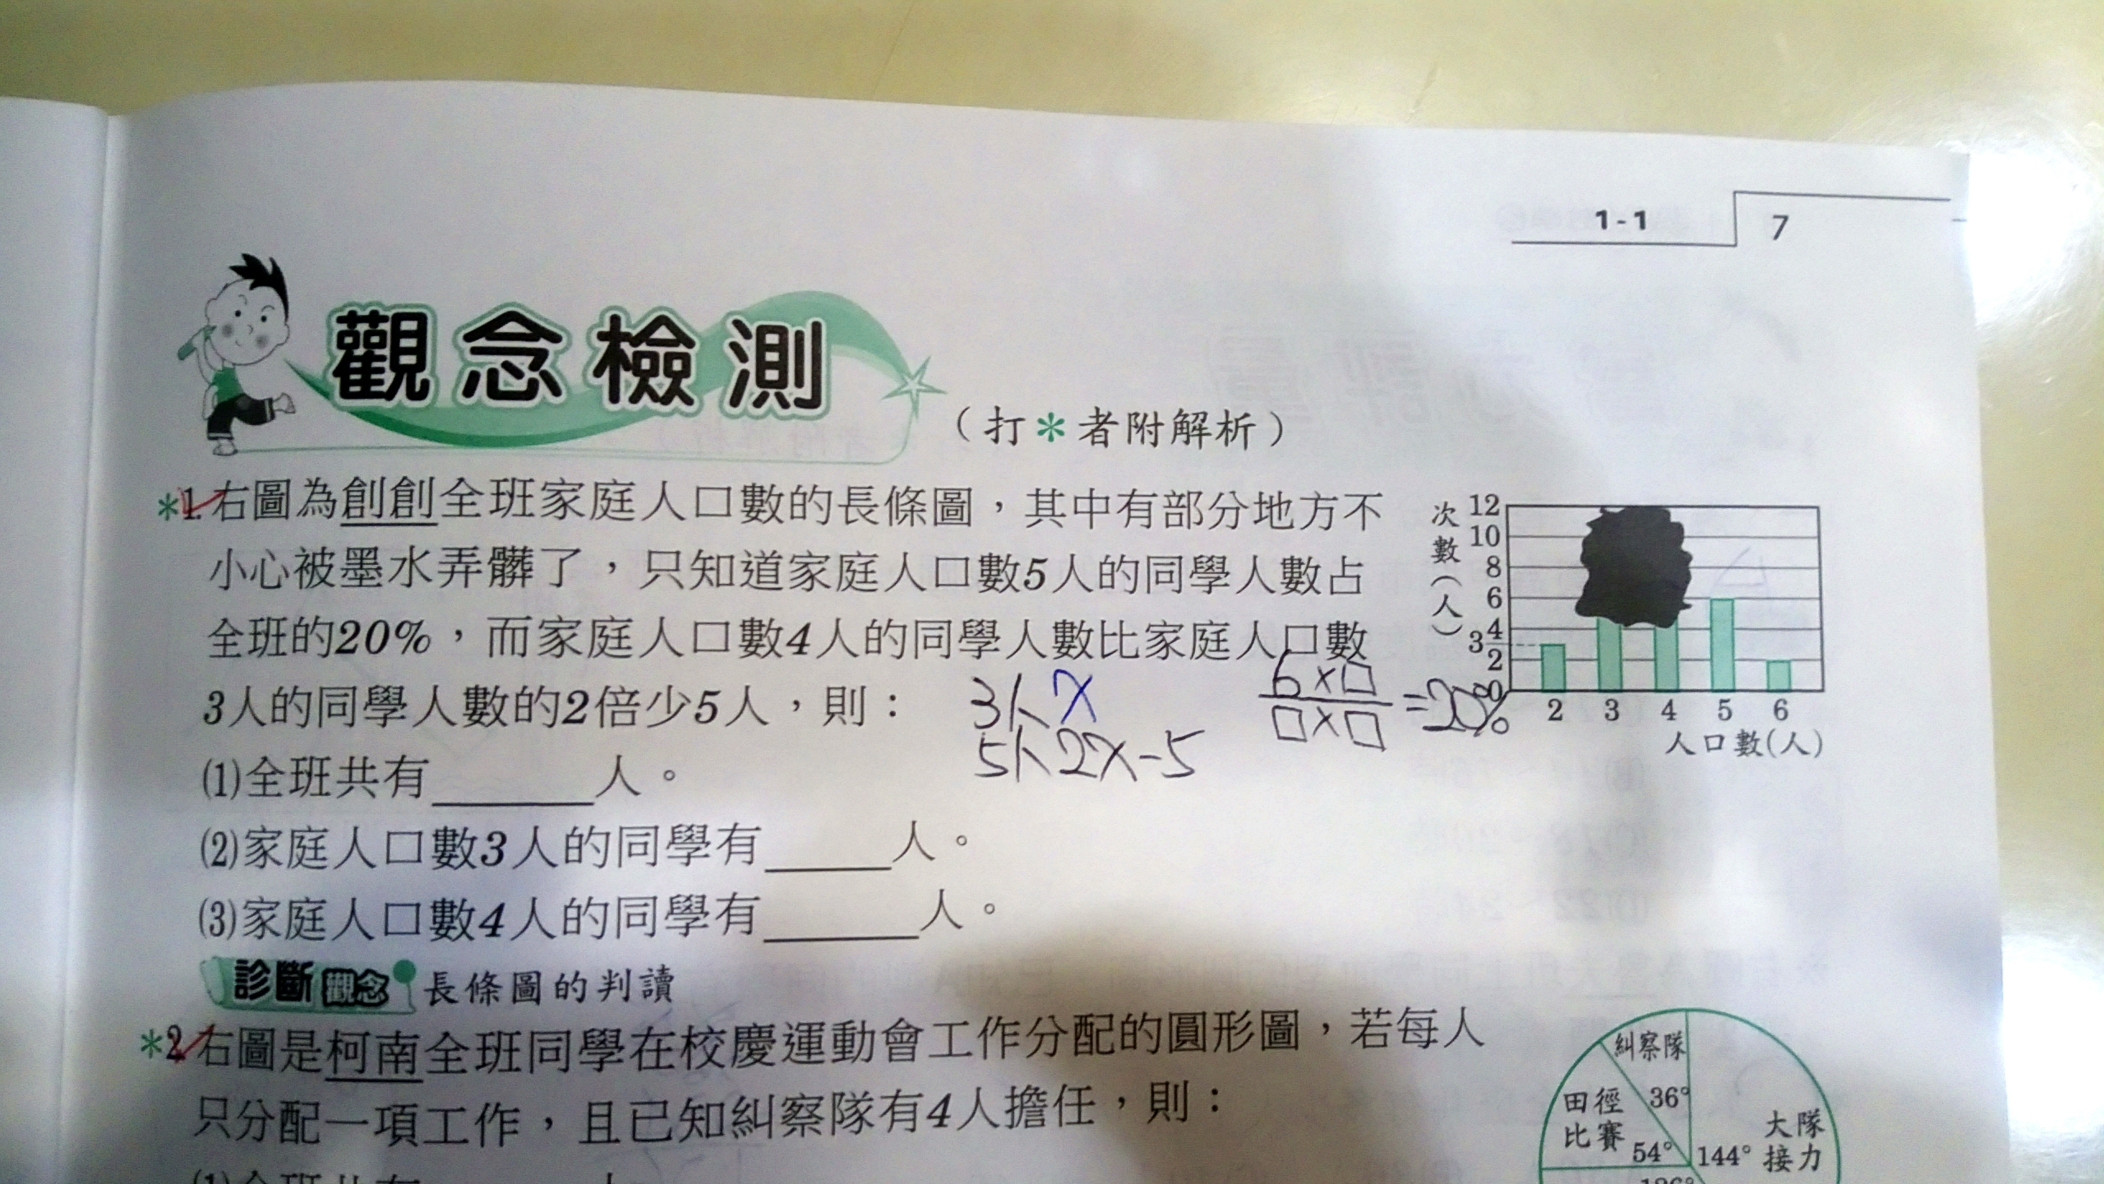 1-1
7
觀念檢測
（打＊者附解析）
＊1.右圖為創創全班家庭人口數的長條圖，其中有部分地方不
小心被墨水弄髒了，只知道家庭人口數5人的同學人數占
全班的20%，而家庭人口數4人的同學人數比家庭人口數
3人的同學人數的2倍少5人，則：
3人 x
5人 2x-5
6×□
□×□
=20%
(1)全班共有______人。
(2)家庭人口數3人的同學有_____人。
(3)家庭人口數4人的同學有______人。
次數（人）
12
10
8
6
4
3
2
0
2 3 4 5 6
人口數(人)
診斷觀念 長條圖的判讀
＊2.右圖是柯南全班同學在校慶運動會工作分配的圓形圖，若每人
只分配一項工作，且已知糾察隊有4人擔任，則：
糾察隊
36°
田徑
比賽
54°
144°
大隊
接力